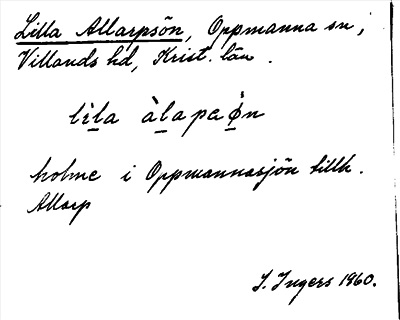 Lilla Allarpsön, Oppmanna sn,
Villands hd, Krist. län.
lìla àlapaön
holme i Oppmannasjön tillh.
Allarp
I. Ingers 1960.